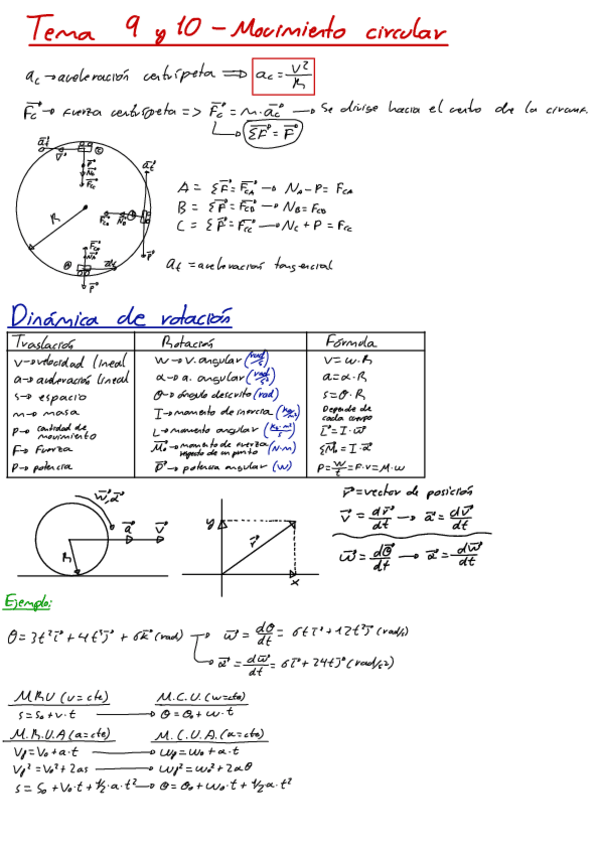 Tema 9 y 10 - Movimiento circular
ac → aceleración centrípeta ⟹ ac = v²/R
F⃗c → Fuerza centrípeta => F⃗c = m·a⃗c → Se dirige hacia el centro de la circunf.
ΣF⃗ = F⃗
A = ΣF⃗ = F⃗cA → NA - P = FcA
B = ΣF⃗ = F⃗cB → NB = FcB
C = ΣF⃗ = F⃗cC → NC + P = FcC
R
at = aceleración tangencial
Dinámica de rotación
Traslación Rotación Fórmula
v → velocidad lineal w → v. angular (rad/s) v = w·R
a → aceleración lineal α → a. angular (rad/s²) a = α·R
s → espacio θ → ángulo descrito (rad) s = θ·R
m → masa I → momento de inercia (kg/m²) Depende de cada cuerpo
P → cantidad de movimiento L → momento angular (kg·m²/s) L⃗ = I·w⃗
F → Fuerza M⃗o → momento de fuerza respecto de un punto (N·m) ΣM⃗o = I·α⃗
P → potencia P⃗ → potencia angular (W) P = W/t = F·v = M·w
w⃗, α⃗
a⃗ v⃗
R
y r⃗ x
r⃗ = vector de posición
v⃗ = dr⃗/dt → a⃗ = dv⃗/dt
w⃗ = dθ⃗/dt → α⃗ = dw⃗/dt
Ejemplo:
θ = 3t²i⃗ + 4t³j⃗ + 6k⃗ (rad) → w⃗ = dθ/dt = 6ti⃗ + 12t²j⃗ (rad/s)
α⃗ = dw⃗/dt = 6i⃗ + 24tj⃗ (rad/s²)
M.R.U (v = cte) M.C.U. (w = cte)
s = s₀ + v·t → θ = θ₀ + w·t
M.R.U.A (a = cte) M.C.U.A. (α = cte)
Vf = V₀ + a·t → wf = w₀ + α·t
Vf² = V₀² + 2as → wf² = w₀² + 2αθ
s = s₀ + v₀·t + 1/2·a·t² → θ = θ₀ + w₀·t + 1/2α·t²